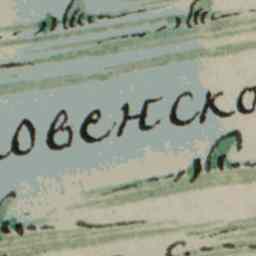 овенско